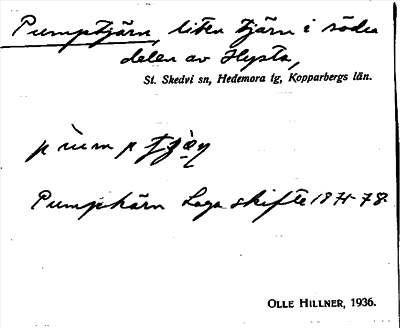 Pumptjärn, liten tjärn i södra
delen av Hysta,
St. Skedvi sn, Hedemora tg, Kopparbergs län.
Pumpkärn Laga skifte 1871-78.
OLLE HILLNER, 1936.